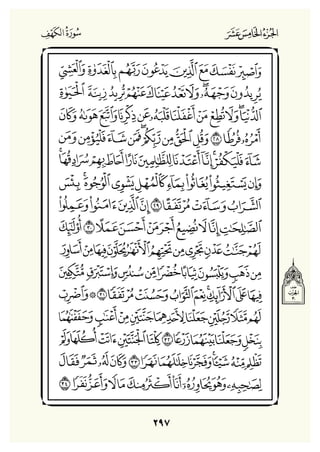 الجزء الخامس عشر
سورة الكهف
واصبر نفسك مع الذين يدعون ربهم بالغدوة والعشي
يريدون وجهه ولا تعد عيناك عنهم تريد زينة الحيوة
الدنيا ولا تطع من أغفلنا قلبه عن ذكرنا واتبع هوىه وكان
أمره فرطا ٢٨ وقل الحق من ربكم فمن شاء فليؤمن ومن
شاء فليكفر إنا أعتدنا للظالمين نارا أحاط بهم سرادقها
وإن يستغيثوا يغاثوا بماء كالمهل يشوي الوجوه بئس
الشراب وساءت مرتفقا ٢٩ إن الذين ءامنوا وعملوا
الصالحات إنا لا نضيع أجر من أحسن عملا ٣٠ أولئك
لهم جنات عدن تجري من تحتهم الأنهار يحلون فيها من أساور
من ذهب ويلبسون ثيابا خضرا من سندس وإستبرق متكئين
فيها على الأرائك نعم الثواب وحسنت مرتفقا ٣١ واضرب
لهم مثلا رجلين جعلنا لأحدهما جنتين من أعناب وحففناهما
بنخل وجعلنا بينهما زرعا ٣٢ كلتا الجنتين ءاتت أكلها ولم
تظلم منه شيئا وفجرنا خلالهما نهرا ٣٣ وكان له ثمر فقال
لصاحبه وهو يحاوره أنا أكثر منك مالا وأعز نفرا ٣٤
٢٩٧